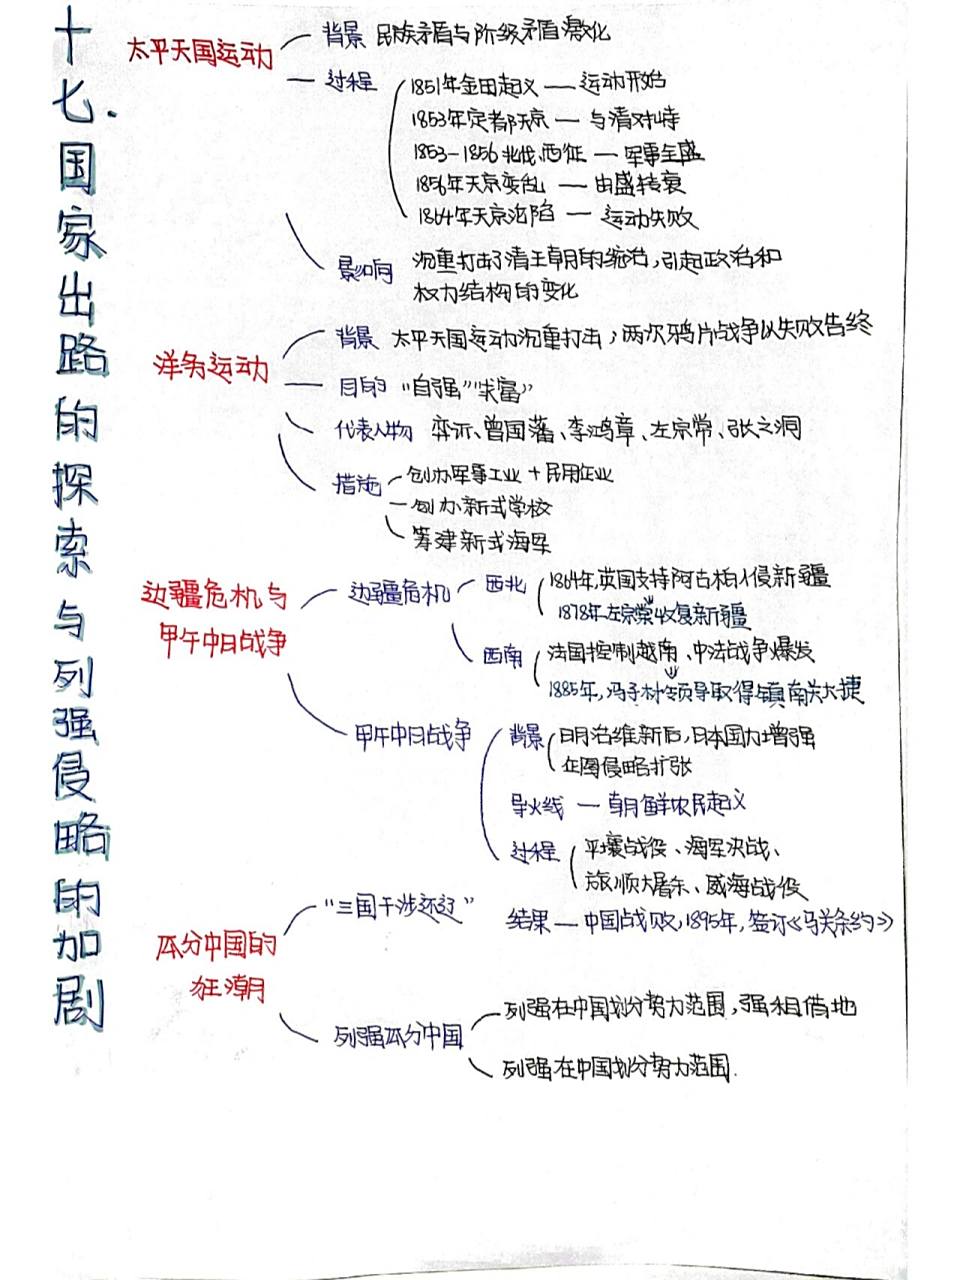 十七.国家出路的探索与列强侵略的加剧
太平天国运动
背景 民族矛盾与阶级矛盾激化
过程
1851年金田起义——运动开始
1853年定都天京——与清对峙
1853-1856北伐、西征——军事全盛
1856年天京变乱——由盛转衰
1864年天京沦陷——运动失败
影响 沉重打击了清王朝的统治,引起政治和
权力结构的变化
洋务运动
背景 太平天国运动沉重打击,两次鸦片战争以失败告终
目的 "自强""求富"
代表人物 奕䜣、曾国藩、李鸿章、左宗棠、张之洞
措施
创办军事工业+民用企业
创办新式学校
筹建新式海军
边疆危机与
甲午中日战争
边疆危机
西北
1864年,英国支持阿古柏入侵新疆
1878年左宗棠收复新疆
西南
法国控制越南、中法战争爆发
1885年,冯子材领导取得镇南关大捷
甲午中日战争
背景
明治维新后,日本国力增强
企图侵略扩张
导火线——朝鲜农民起义
过程
平壤战役、海军决战、
旅顺大屠杀、威海战役
结果——中国战败,1895年,签订《马关条约》
瓜分中国的
狂潮
"三国干涉还辽"
列强瓜分中国
列强在中国划分势力范围,强租借地
列强在中国划分势力范围.